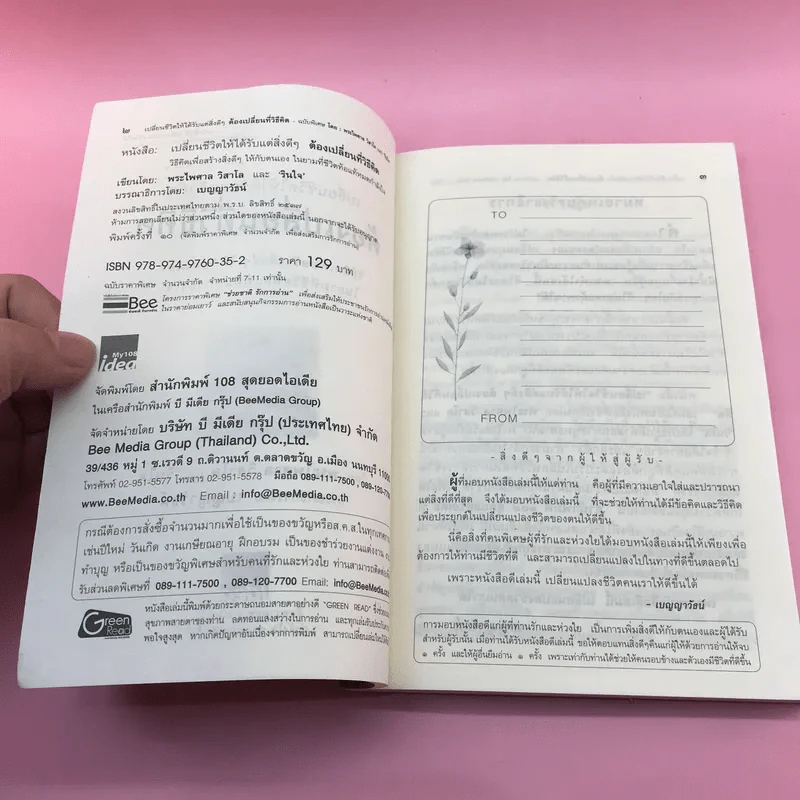 ๒ เปลี่ยนชีวิตให้ได้รับแต่สิ่งดีๆ ต้องเปลี่ยนที่วิธีคิด - ฉบับพิเศษ โดย : พระไพศาล
หนังสือ: เปลี่ยนชีวิตให้ได้รับแต่สิ่งดีๆ ต้องเปลี่ยนที่วิธีคิด
วิธีคิดเพื่อสร้างสิ่งดีๆ ให้กับตนเอง ในยามที่ชีวิตท้อแท้หมดกำลังใจ
เขียนโดย: พระไพศาล วิสาโล และ 'รินใจ'
บรรณาธิการโดย: เบญญาวัธน์
สงวนลิขสิทธิ์ในประเทศไทยตาม พ.ร.บ. ลิขสิทธิ์ ๒๕๓๗
ห้ามการลอกเลียนไม่ว่าส่วนหนึ่ง ส่วนใดของหนังสือเล่มนี้ นอกจากจะได้รับอนุญาต
พิมพ์ครั้งที่ ๑๐ (จัดพิมพ์ราคาพิเศษ จำนวนจำกัด เพื่อส่งเสริมการรักการอ่าน)
ISBN 978-974-9760-35-2 ราคา 129 บาท
ฉบับราคาพิเศษ จำนวนจำกัด จำหน่ายที่ 7-11 เท่านั้น
Bee โครงการราคาพิเศษ "ช่วยชาติ รักการอ่าน" เพื่อส่งเสริมให้ประชาชนรักการอ่าน
ในราคาย่อมเยาว์ และสนับสนุนกิจกรรมการอ่านหนังสือเป็นวาระแห่งชาติ
My108
idea
จัดพิมพ์โดย สำนักพิมพ์ 108 สุดยอดไอเดีย
ในเครือสำนักพิมพ์ บี มีเดีย กรุ๊ป (BeeMedia Group)
จัดจำหน่ายโดย บริษัท บี มีเดีย กรุ๊ป (ประเทศไทย) จำกัด
Bee Media Group (Thailand) Co.,Ltd.
39/436 หมู่ 1 ซ.เรวดี 9 ถ.ติวานนท์ ต.ตลาดขวัญ อ.เมือง นนทบุรี
โทรศัพท์ 02-951-5577 โทรสาร 02-951-5578 มือถือ 089-111-7500 , 089-120-
www.BeeMedia.co.th Email : info@BeeMedia.co.th
กรณีต้องการสั่งซื้อจำนวนมากเพื่อใช้เป็นของขวัญหรือส.ค.ส.ในทุกเทศกาล
เช่นปีใหม่ วันเกิด งานเกษียณอายุ ฝึกอบรม เป็นของชำร่วยงานแต่งงาน
ทำบุญ หรือเป็นของขวัญพิเศษสำหรับคนที่รักและห่วงใย ท่านสามารถติดต่อ
รับส่วนลดพิเศษที่ 089-111-7500 , 089-120-7700 Email: info@BeeMedia.co
Green
Read
หนังสือเล่มนี้พิมพ์ด้วยกระดาษถนอมสายตาอย่างดี "GREEN READ"
สุขภาพสายตาของท่าน ลดทอนแสงสว่างในการอ่าน และทุกเล่มรับประกัน
พอใจสูงสุด หากเกิดปัญหาอันเนื่องจากการพิมพ์ สามารถเปลี่ยนเล่มใหม่ได้
๓
TO
FROM
- สิ่งดีๆจากผู้ให้สู่ผู้รับ -
ผู้ที่มอบหนังสือเล่มนี้ให้แด่ท่าน คือผู้ที่มีความเอาใจใส่และปรารถนา
แต่สิ่งที่ดีที่สุด จึงได้มอบหนังสือเล่มนี้ ที่จะช่วยให้ท่านได้มีข้อคิดและวิธีคิด
เพื่อประยุกต์ในเปลี่ยนแปลงชีวิตของตนให้ดีขึ้น
นี่คือสิ่งที่คนพิเศษผู้ที่รักและห่วงใยได้มอบหนังสือเล่มนี้ให้เพียงเพื่อ
ต้องการให้ท่านมีชีวิตที่ดี และสามารถเปลี่ยนแปลงไปในทางที่ดีขึ้นตลอดไป
เพราะหนังสือดีเล่มนี้ เปลี่ยนแปลงชีวิตคนเราให้ดีขึ้นได้
- เบญญาวัธน์
การมอบหนังสือดีแก่ผู้ที่ท่านรักและห่วงใย เป็นการเพิ่มสิ่งดีให้กับตนเองและผู้ได้รับ
สำหรับผู้รับนั้น เมื่อท่านได้รับหนังสือดีเล่มนี้ ขอให้ตอบแทนสิ่งดีๆคืนแก่ผู้ให้ด้วยการอ่านให้จบ
๑ ครั้ง และให้ผู้อื่นยืมอ่าน ๑ ครั้ง เพราะเท่ากับท่านได้ช่วยให้คนรอบข้างและตัวเองมีชีวิตที่ดีขึ้น